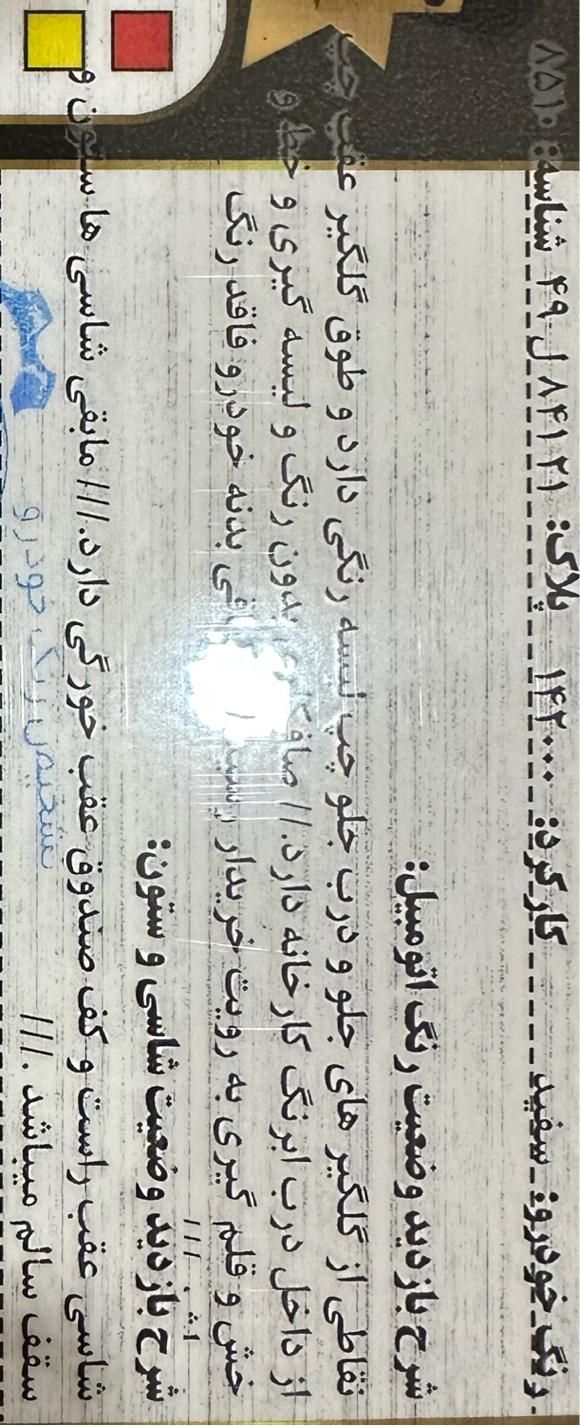 رنگ خودرو: سفید کارکرد: ۱۴۲۰۰۰ پلاک: ۲۱ ۸۴۱ ل ۴۹ شناسه: ۸۵۱۰
شرح بازدید وضعیت رنگ اتومبیل:
نقاطی از گلگیر های جلو و درب جلو چپ لیسه رنگی دارد و طوق گلگیر عقب چپ
از داخل درب ابرنگ کارخانه دارد.// بدون رنگ و لیسه گیری و خط و
خش و قلم گیری به رویت خریدار بدنه خودرو فاقد رنگ
///
شرح بازدید وضعیت شاسی و ستون:
شاسی عقب راست و کف صندوق عقب خوردگی دارد./// مابقی شاسی ها ستون و
سقف سالم میباشد ./// تشخیص رنگ خودرو